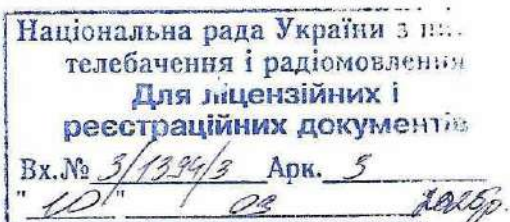 Національна рада України з
телебачення і радіомовлення
Для ліцензійних і
реєстраційних документів
Вх.№ 3/1394/3 Арк. 5
"10" 03 2025р.